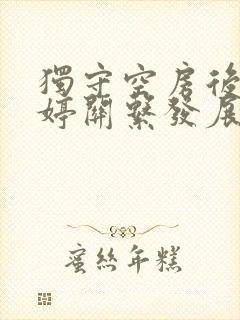 獨守空房後
婷關繫發展
蜜絲年糕